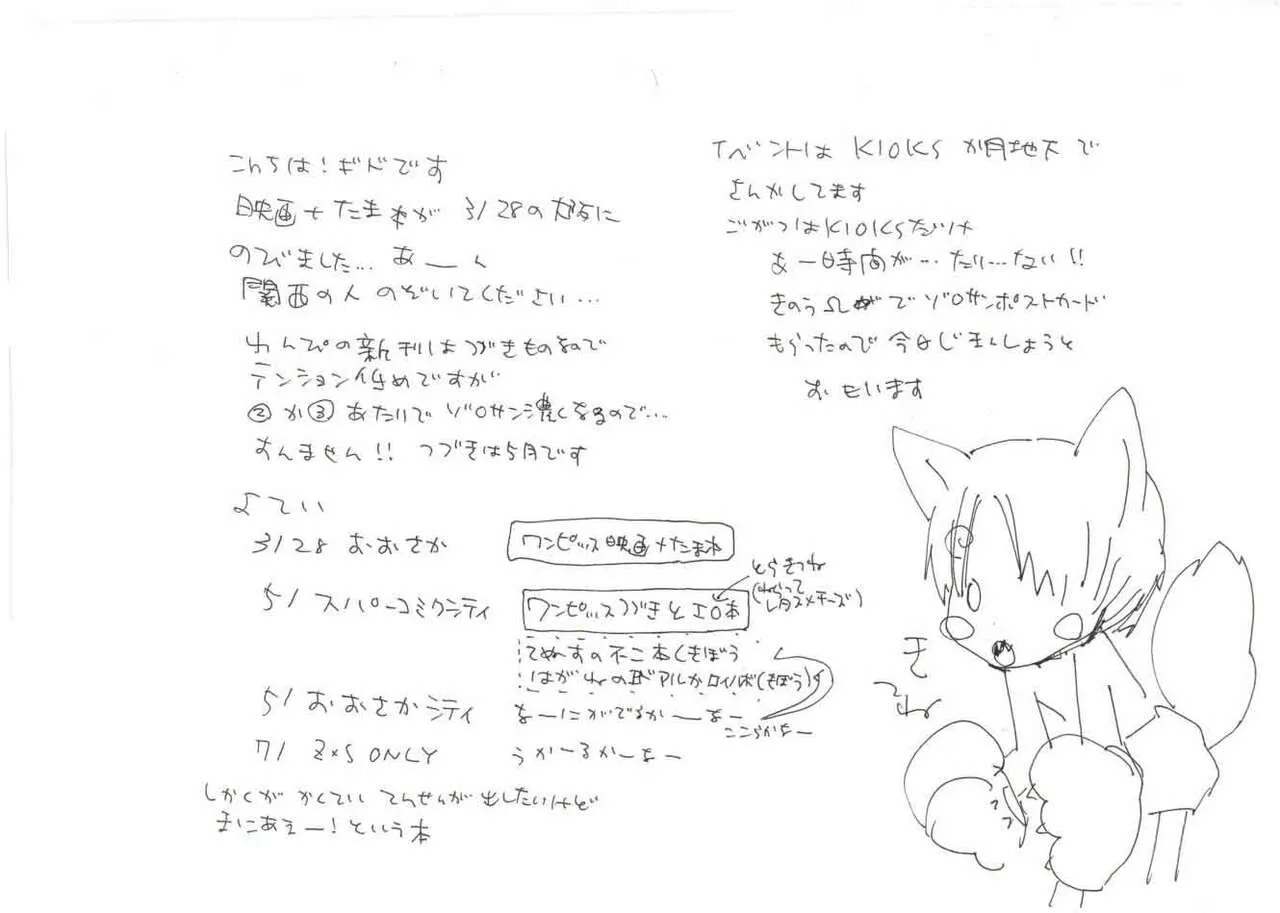 こんちは！ギドです
映画＋たまねが 3/28の大阪に
のびました… あーん
関西の人 のぞいてください…
わんぴの新刊はつづきものなので
テンション低めですが
②か③あたりでゾロサン濃くなるので…
すんません!! つづきは5月です
よてい
3/28 おおさか
ワンピッス映画＋たまね
5/ スパーコミクシティ
ワンピッスつづきとエロ本
とらきつね
(ねらって
レタスメチーズ)
てぬすの不二本(きぼう
はがれの
ロイルボ(きぼう)
5/ おおさかシティ
なーにがでるかーなー
ここらかなー
7/ Z×S ONLY
うかーるかーなー
しかくが かくてい てんせんが 出したいけど
まにあえー！という本
イベントは K10KS が月地下で
さんかしてます
ごがつはK10KSだけ
あー時間が…たり…ない!!
きのうΩでゾロサンポストカード
もらったので 今日じまんしようと
おもいます